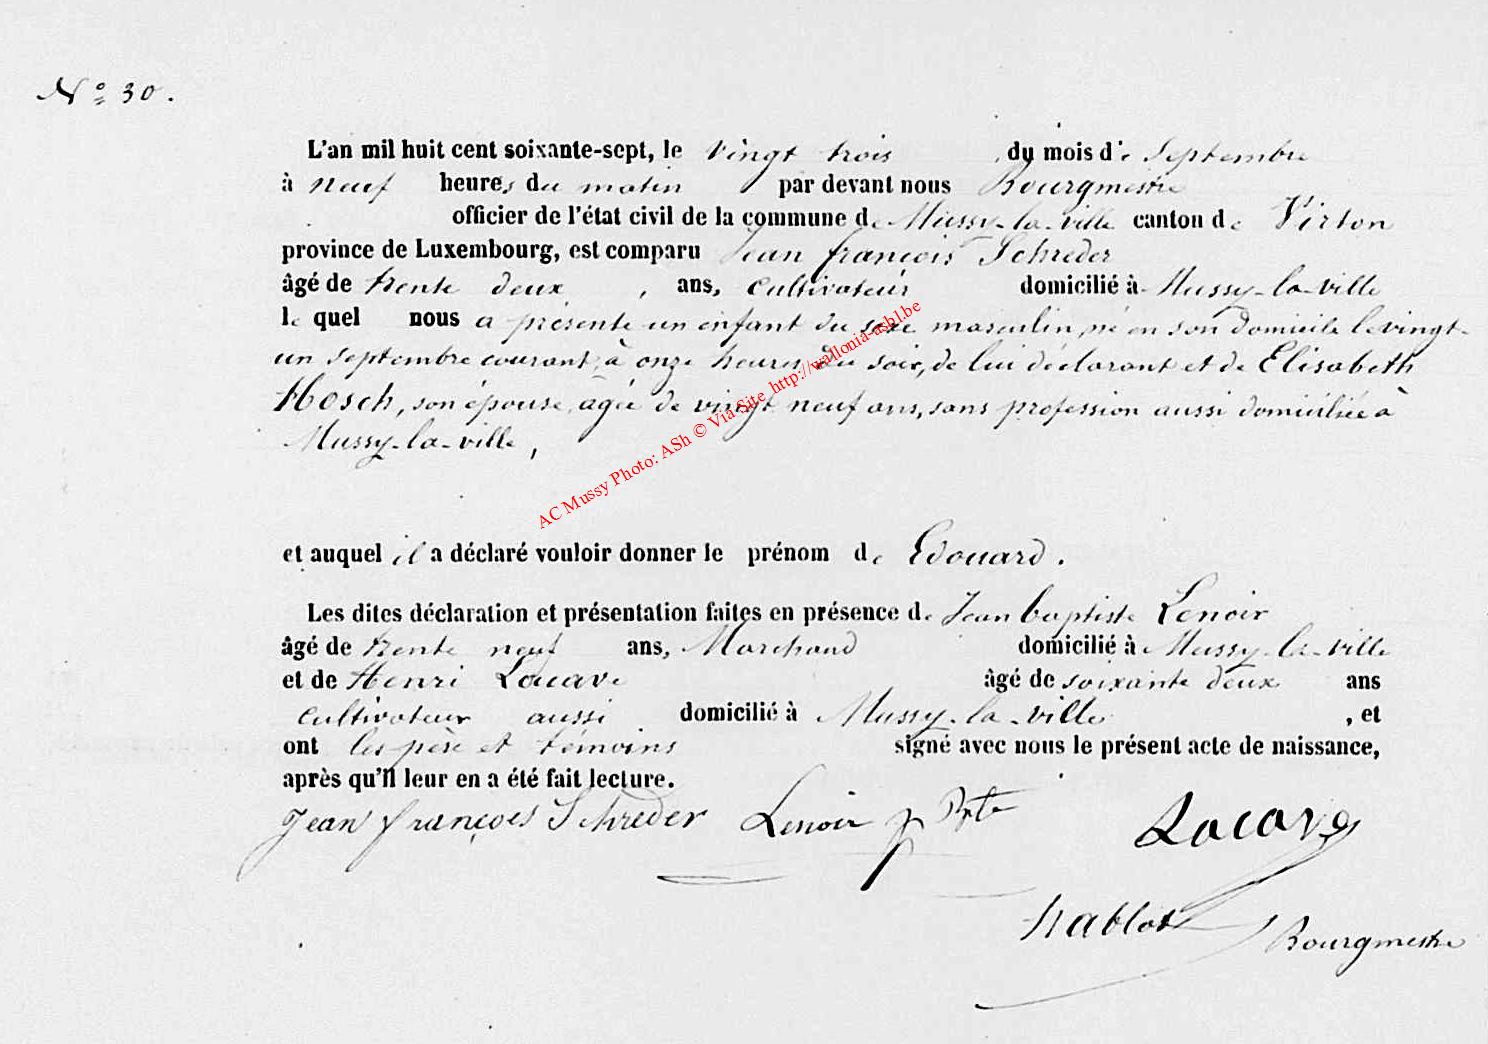 N° 30.
L'an mil huit cent soixante-sept, le vingt trois du mois de Septembre
à neuf heures du matin par devant nous Bourgmestre
officier de l'état civil de la commune de Mussy-la-ville canton de Virton
province de Luxembourg, est comparu Jean françois Schreder
âgé de trente deux, ans, cultivateur domicilié à Mussy-la-ville
le quel nous a présenté un enfant du sexe masculin, né en son domicile le vingt-
un septembre courant, à onze heures du soir, de lui déclarant et de Elisabeth
Hosch, son épouse, agée de vingt neuf ans, sans profession aussi domiciliée à
Mussy-la-ville,
AC Mussy Photo: ASh © Via Site http://wallonia-asbl.be
et auquel il a déclaré vouloir donner le prénom de Edouard.
Les dites déclaration et présentation faites en présence de Jean baptiste Lenoir
âgé de trente neuf ans, Marchand domicilié à Mussy-la-ville
et de Henri Lacave âgé de soixante deux ans
cultivateur aussi domicilié à Mussy-la-ville, et
ont les père et témoins signé avec nous le présent acte de naissance,
après qu'il leur en a été fait lecture.
Jean françois Schreder Lenoir J Bte Lacave
hablot Bourgmestre